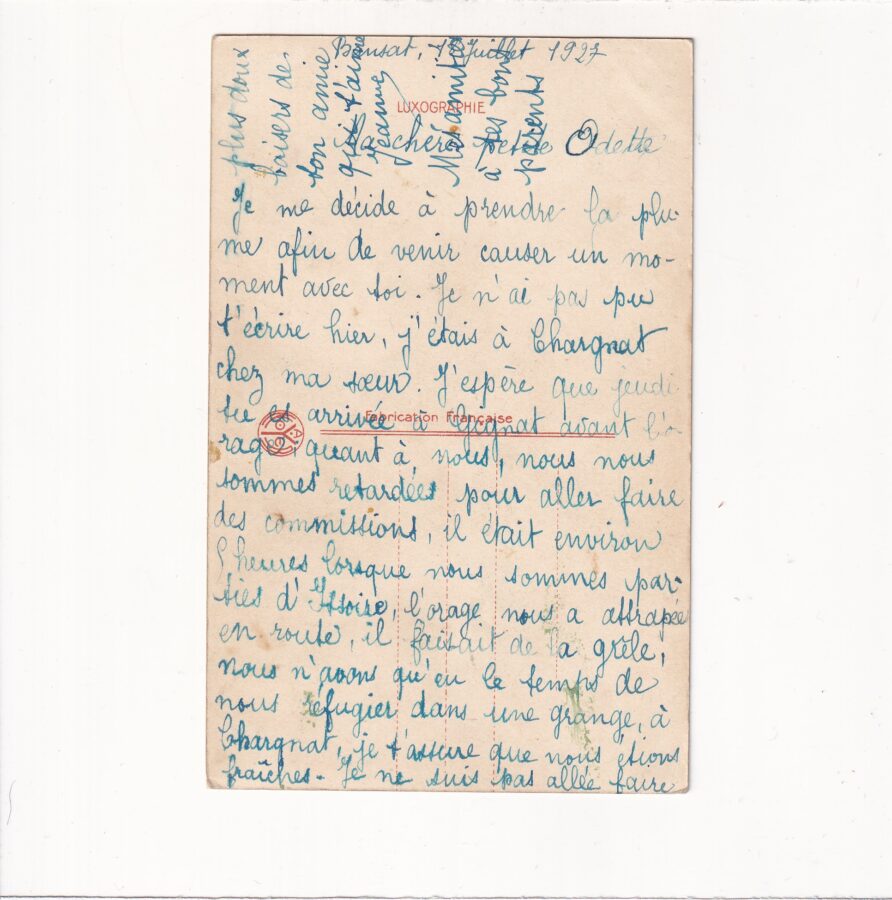 Bansat, 18 Juillet 1927
LUXOGRAPHIE
Ma chère petite Odette
Je me décide à prendre la plu-
me afin de venir causer un mo-
ment avec toi. Je n'ai pas pu
t'écrire hier, j'étais à Chargnat
chez ma sœur. J'espère que jeudi
tu es arrivée à Gignat avant l'o
Fabrication Française
rage, quant à nous, nous nous
sommes retardées pour aller faire
des commissions, il était environ
5 heures lorsque nous sommes par-
ties d'Issoire, l'orage nous a attrapée
en route, il faisait de la grêle,
nous n'avons qu'eu le temps de
nous réfugier dans une grange, à
Chargnat, je t'assure que nous étions
fraîches. Je ne suis pas allée faire
plus doux
baisers de
ton amie
qui t'aime
Jeanne
Mes amitiés
à tes bons
parents